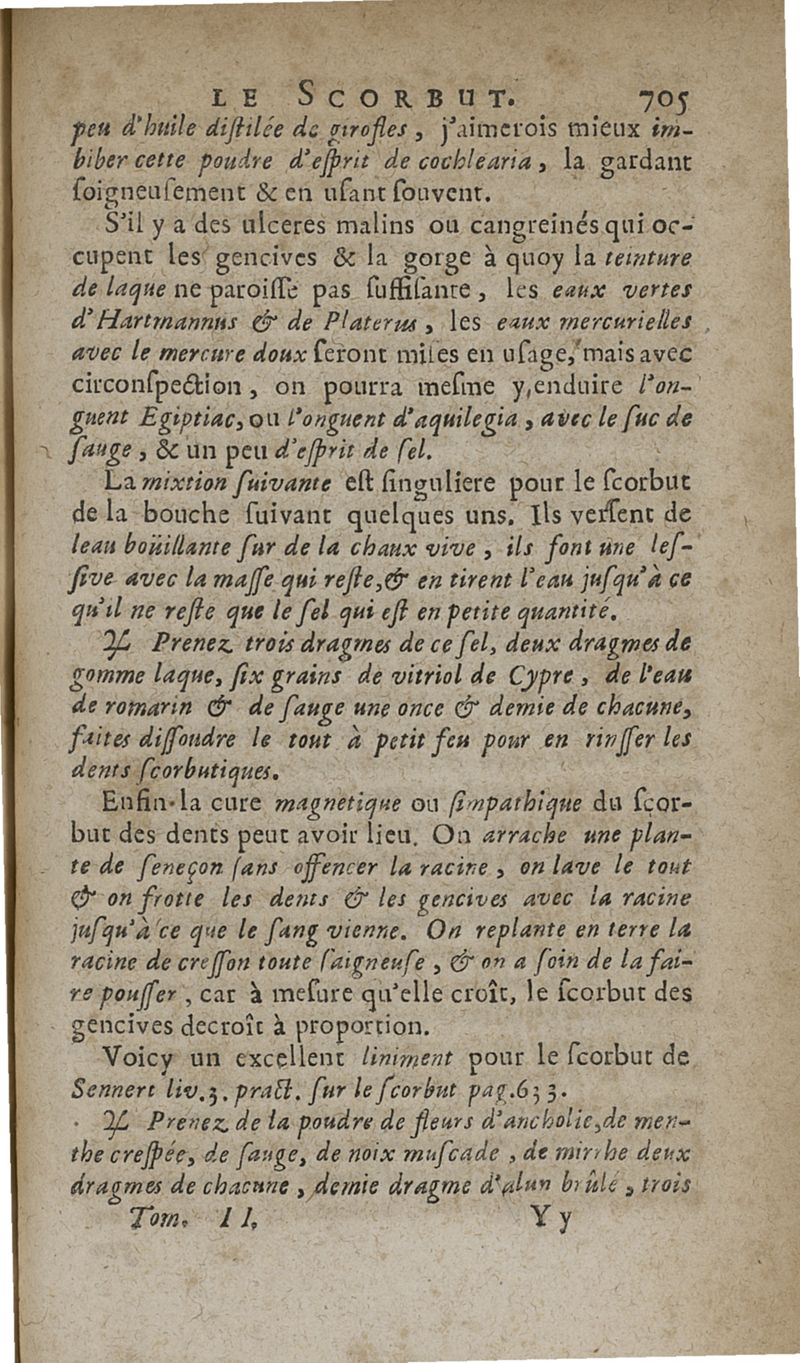 LE SCORBUT. 705
peu d'huile diſtilée de girofles, j'aimerois mieux im-
biber cette poudre d'eſprit de cochlearia, la gardant
ſoigneuſement & en uſant ſouvent.
S'il y a des ulceres malins ou cangreinés qui oc-
cupent les gencives & la gorge à quoy la teinture
de laque ne paroiſſe pas ſuffiſante, les eaux vertes
d'Hartmannus & de Platerus, les eaux mercurielles
avec le mercure doux ſeront miſes en uſage, mais avec
circonſpection, on pourra meſme y enduire l'on-
guent Egiptiac, ou l'onguent d'aquilegia, avec le ſuc de
ſauge, & un peu d'eſprit de ſel.
La mixtion ſuivante eſt ſinguliere pour le ſcorbut
de la bouche ſuivant quelques uns. Ils verſent de
leau boüillante ſur de la chaux vive, ils font une leſ-
ſive avec la maſſe qui reſte, & en tirent l'eau juſqu'à ce
qu'il ne reſte que le ſel qui eſt en petite quantité.
♃ Prenez trois dragmes de ce ſel, deux dragmes de
gomme laque, ſix grains de vitriol de Cypre, de l'eau
de romarin & de ſauge une once & demie de chacune,
faites diſſoudre le tout à petit feu pour en rinſſer les
dents ſcorbutiques.
Enfin la cure magnetique ou ſimpathique du ſcor-
but des dents peut avoir lieu. On arrache une plan-
te de ſeneçon ſans offencer la racine, on lave le tout
& on frotte les dents & les gencives avec la racine
juſqu'à ce que le ſang vienne. On replante en terre la
racine de creſſon toute ſaigneuſe, & on a ſoin de la fai-
re pouſſer, car à meſure qu'elle croît, le ſcorbut des
gencives decroît à proportion.
Voicy un excellent liniment pour le ſcorbut de
Sennert liv.3. pract. ſur le ſcorbut pag.633.
♃ Prenez de la poudre de fleurs d'ancholie, de men-
the creſpée, de ſauge, de noix muſcade, de mirrhe deux
dragmes de chacune, demie dragme d'alun brûlé, trois
Tom. II. Yy